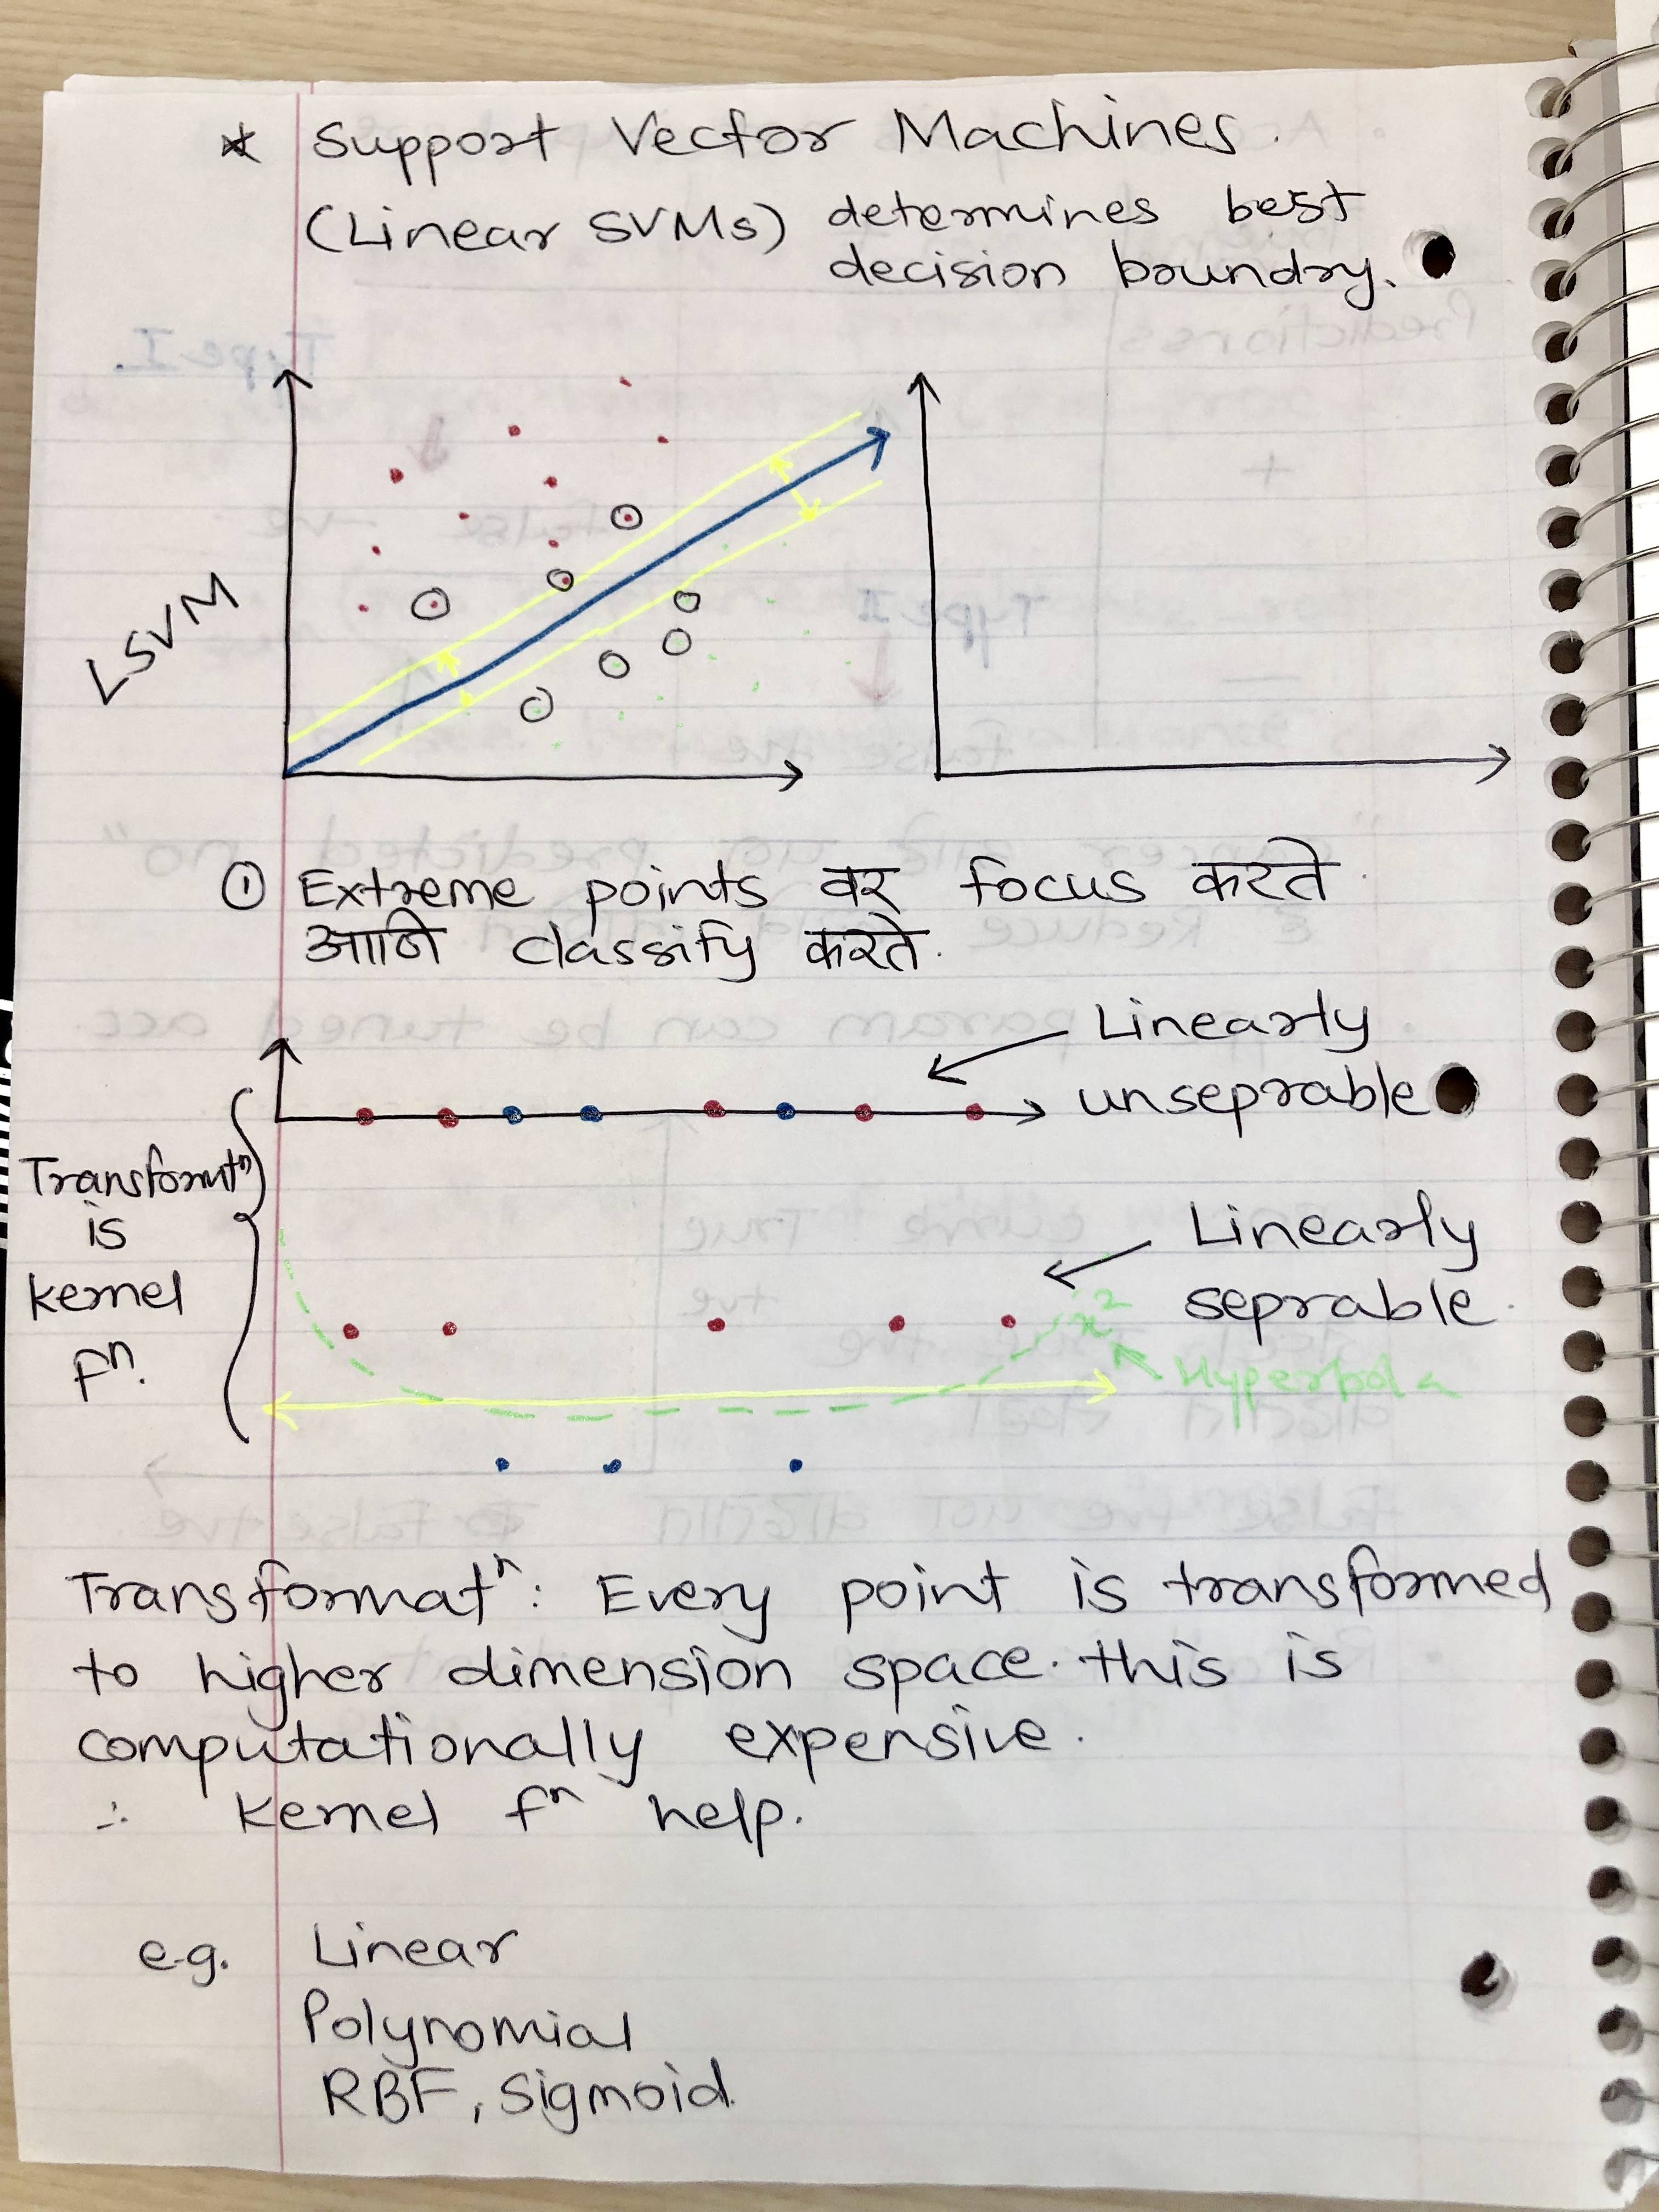 * Support Vector Machines.
(Linear SVMs) determines best
decision boundry.
LSVM
① Extreme points वर focus करते.
आणि classify करते.
Linearly
unseprable
Transformtⁿ
is
kernel
fⁿ.
Linearly
seprable.
x²
Hyperbola
Transformatⁿ: Every point is transformed
to higher dimension space. this is
computationally expensive.
∴ kernel fⁿ help.
e.g. Linear
Polynomial
RBF, Sigmoid